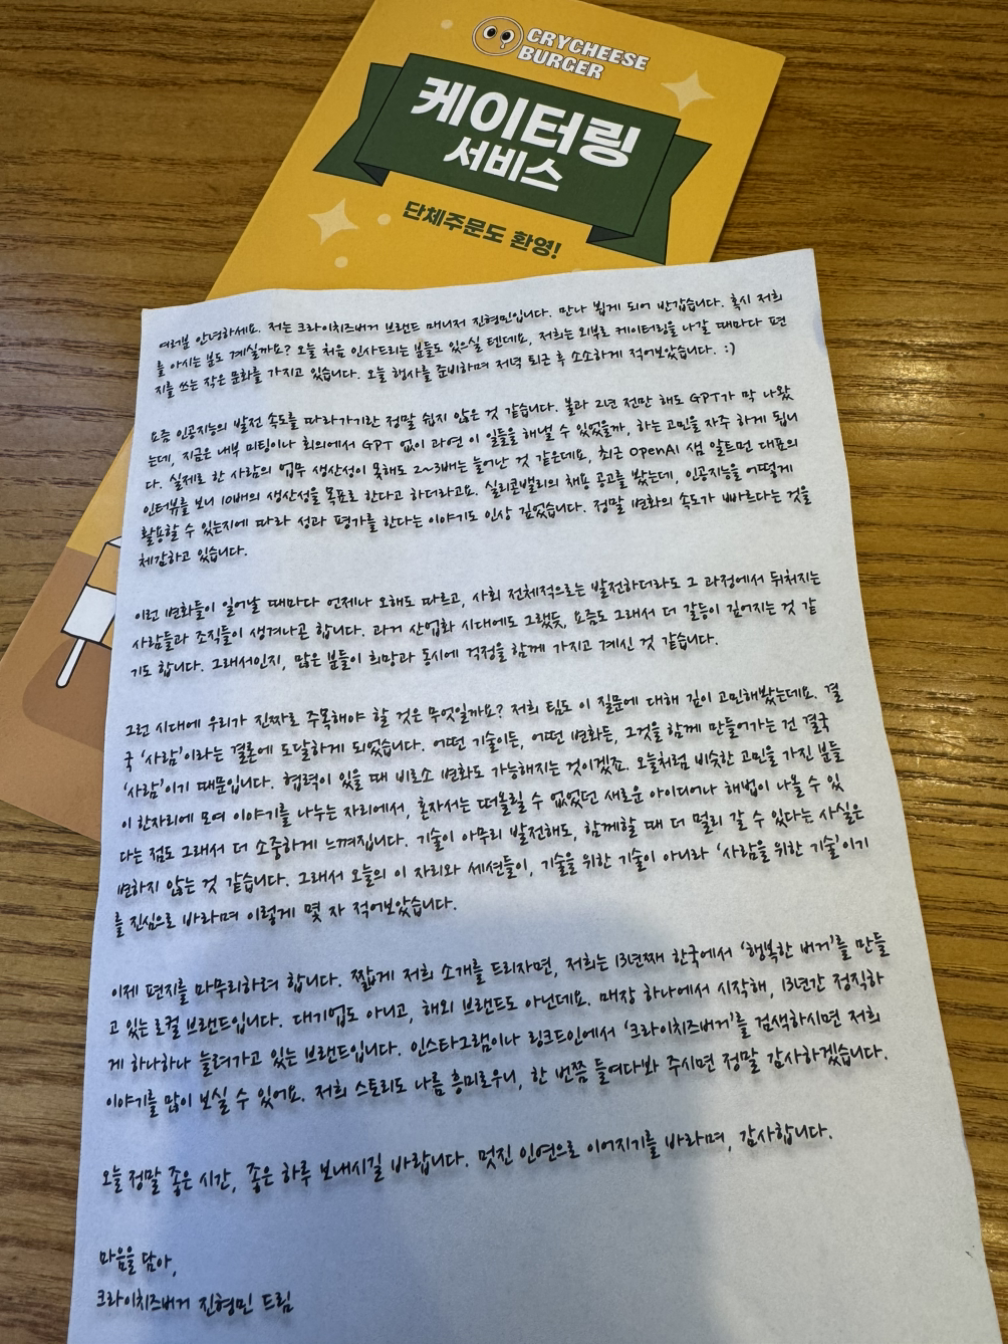 CRYCHEESE
BURGER
케이터링
서비스
단체주문도 환영!
여러분 안녕하세요. 저는 크라이치즈버거 브랜드 매니저 진형민입니다. 만나 뵙게 되어 반갑습니다. 혹시 저희
를 아시는 분도 계실까요? 오늘 처음 인사드리는 분들도 있으실 텐데요, 저희는 외부로 케이터링을 나갈 때마다 편
지를 쓰는 작은 문화를 가지고 있습니다. 오늘 행사를 준비하며 저녁 퇴근 후 소소하게 적어보았습니다. :)
요즘 인공지능의 발전 속도를 따라가기란 정말 쉽지 않은 것 같습니다. 불과 2년 전만 해도 GPT가 막 나왔
는데, 지금은 내부 미팅이나 회의에서 GPT 없이 과연 이 일들을 해낼 수 있었을까, 하는 고민을 자주 하게 됩니
다. 실제로 한 사람의 업무 생산성이 못해도 2~3배는 늘어난 것 같은데요, 최근 OpenAI 샘 알트먼 대표의
인터뷰를 보니 10배의 생산성을 목표로 한다고 하더라고요. 실리콘밸리의 채용 공고를 봤는데, 인공지능을 어떻게
활용할 수 있는지에 따라 성과 평가를 한다는 이야기도 인상 깊었습니다. 정말 변화의 속도가 빠르다는 것을
체감하고 있습니다.
이런 변화들이 일어날 때마다 언제나 오해도 따르고, 사회 전체적으로는 발전하더라도 그 과정에서 뒤처지는
사람들과 조직들이 생겨나곤 합니다. 과거 산업화 시대에도 그랬듯, 요즘도 그래서 더 갈등이 깊어지는 것 같
기도 합니다. 그래서인지, 많은 분들이 희망과 동시에 걱정을 함께 가지고 계신 것 같습니다.
그런 시대에 우리가 진짜로 주목해야 할 것은 무엇일까요? 저희 팀도 이 질문에 대해 깊이 고민해봤는데요. 결
국 ‘사람’이라는 결론에 도달하게 되었습니다. 어떤 기술이든, 어떤 변화든, 그것을 함께 만들어가는 건 결국
‘사람’이기 때문입니다. 협력이 있을 때 비로소 변화도 가능해지는 것이겠죠. 오늘처럼 비슷한 고민을 가진 분들
이 한자리에 모여 이야기를 나누는 자리에서, 혼자서는 떠올릴 수 없었던 새로운 아이디어나 해법이 나올 수 있
다는 점도 그래서 더 소중하게 느껴집니다. 기술이 아무리 발전해도, 함께할 때 더 멀리 갈 수 있다는 사실은
변하지 않는 것 같습니다. 그래서 오늘의 이 자리와 세션들이, 기술을 위한 기술이 아니라 ‘사람을 위한 기술’이기
를 진심으로 바라며 이렇게 몇 자 적어보았습니다.
이제 편지를 마무리하려 합니다. 짧게 저희 소개를 드리자면, 저희는 13년째 한국에서 ‘행복한 버거’를 만들
고 있는 로컬 브랜드입니다. 대기업도 아니고, 해외 브랜드도 아닌데요. 매장 하나에서 시작해, 13년간 정직하
게 하나하나 늘려가고 있는 브랜드입니다. 인스타그램이나 링크드인에서 ‘크라이치즈버거’를 검색하시면 저희
이야기를 많이 보실 수 있어요. 저희 스토리도 나름 흥미로우니, 한 번쯤 들여다봐 주시면 정말 감사하겠습니다.
오늘 정말 좋은 시간, 좋은 하루 보내시길 바랍니다. 멋진 인연으로 이어지기를 바라며, 감사합니다.
마음을 담아,
크라이치즈버거 진형민 드림